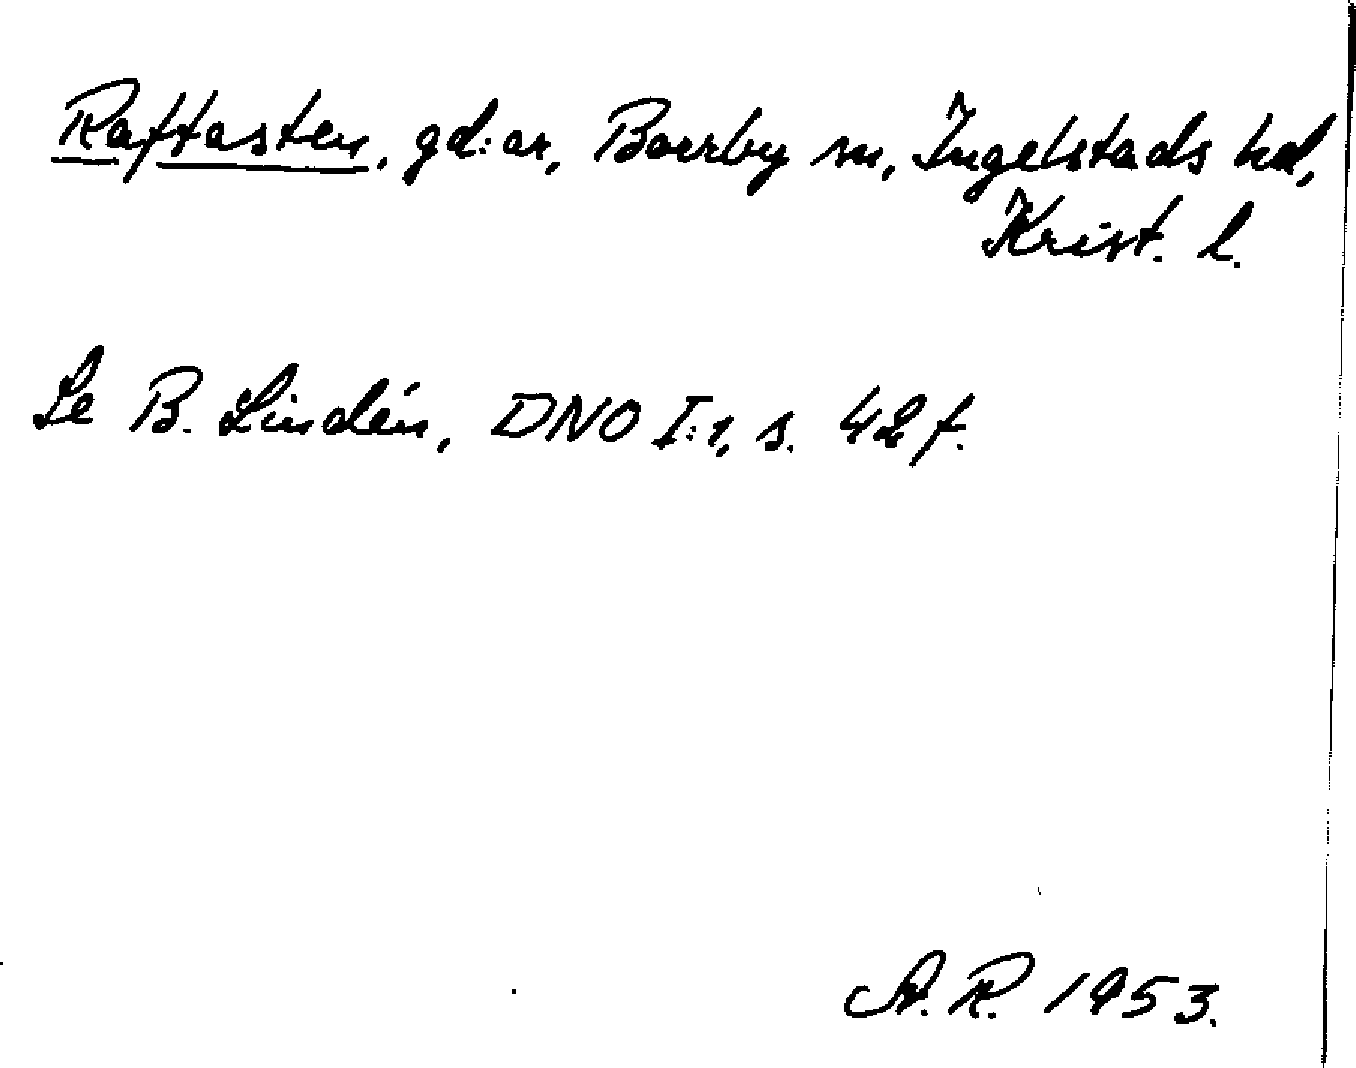 Raftasten, gd:ar, Borrby sn, Ingelstads hd,
Krist. l.
Se B. Lindén, DNO I:1, s. 42 f.
A. R. 1953.